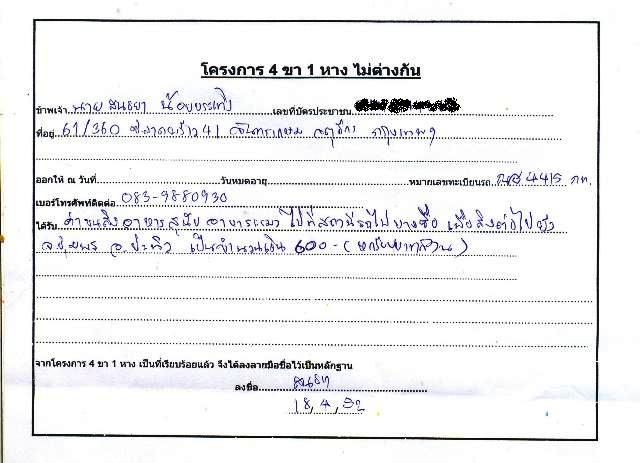 โครงการ 4 ขา 1 หาง ไม่ต่างกัน
ข้าพเจ้า นาย สนธยา น้อยบรรเทิง เลขที่บัตรประชาชน
ที่อยู่ 61/360 ซ.ลาดพร้าว 41 จันทรเกษม จตุจักร กรุงเทพฯ
ออกให้ ณ วันที่ วันหมดอายุ หมายเลขทะเบียนรถ 4415 กท.
เบอร์โทรศัพท์ติดต่อ 083-9880930
ได้รับ ค่าขนส่งอาหารสุนัข อาหารแมว ไปที่สถานีรถไฟบางซื่อ เพื่อส่งต่อไปยัง
จ.ชุมพร อ.ปะทิว เป็นจำนวนเงิน 600-(หกร้อยบาทถ้วน)
จากโครงการ 4 ขา 1 หาง เป็นที่เรียบร้อยแล้ว จึงได้ลงลายมือชื่อไว้เป็นหลักฐาน
ลงชื่อ สนธยา
18, 4, 52